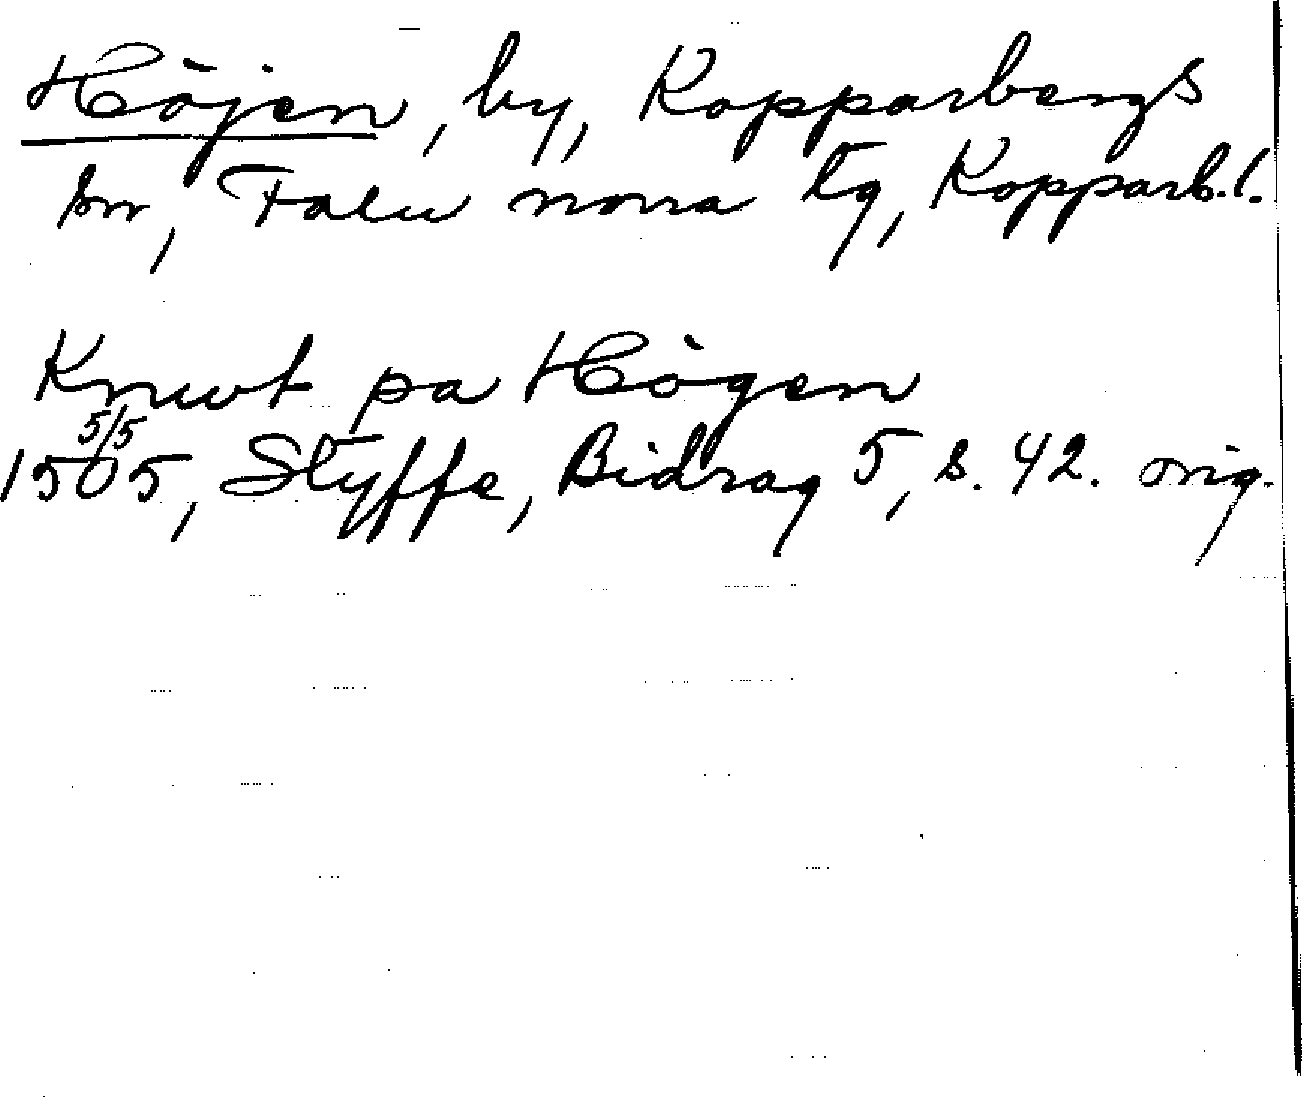 Höjen, by, Kopparbergs
sn, Falu norra tg, Kopparb. l.
Knwt pa Högen
5/5
1505, Styffe, Bidrag 5, s. 42. orig.